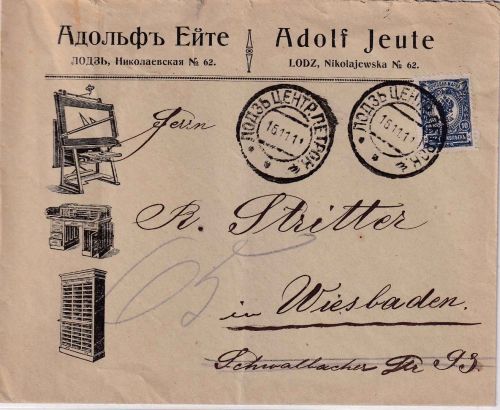 Адольфъ Ейте
ЛОДЗЬ, Николаевская № 62.
Adolf Jeute
LODZ, Nikolajewska № 62.
ЛОДЗЬ ЦЕНТР. ПЕТРОК.
15.11.11
ЛОДЗЬ ЦЕНТР. ПЕТРОК.
15.11.11
10
Herrn
R. Stritter
in Wiesbaden.
Schwalbacher Str 93